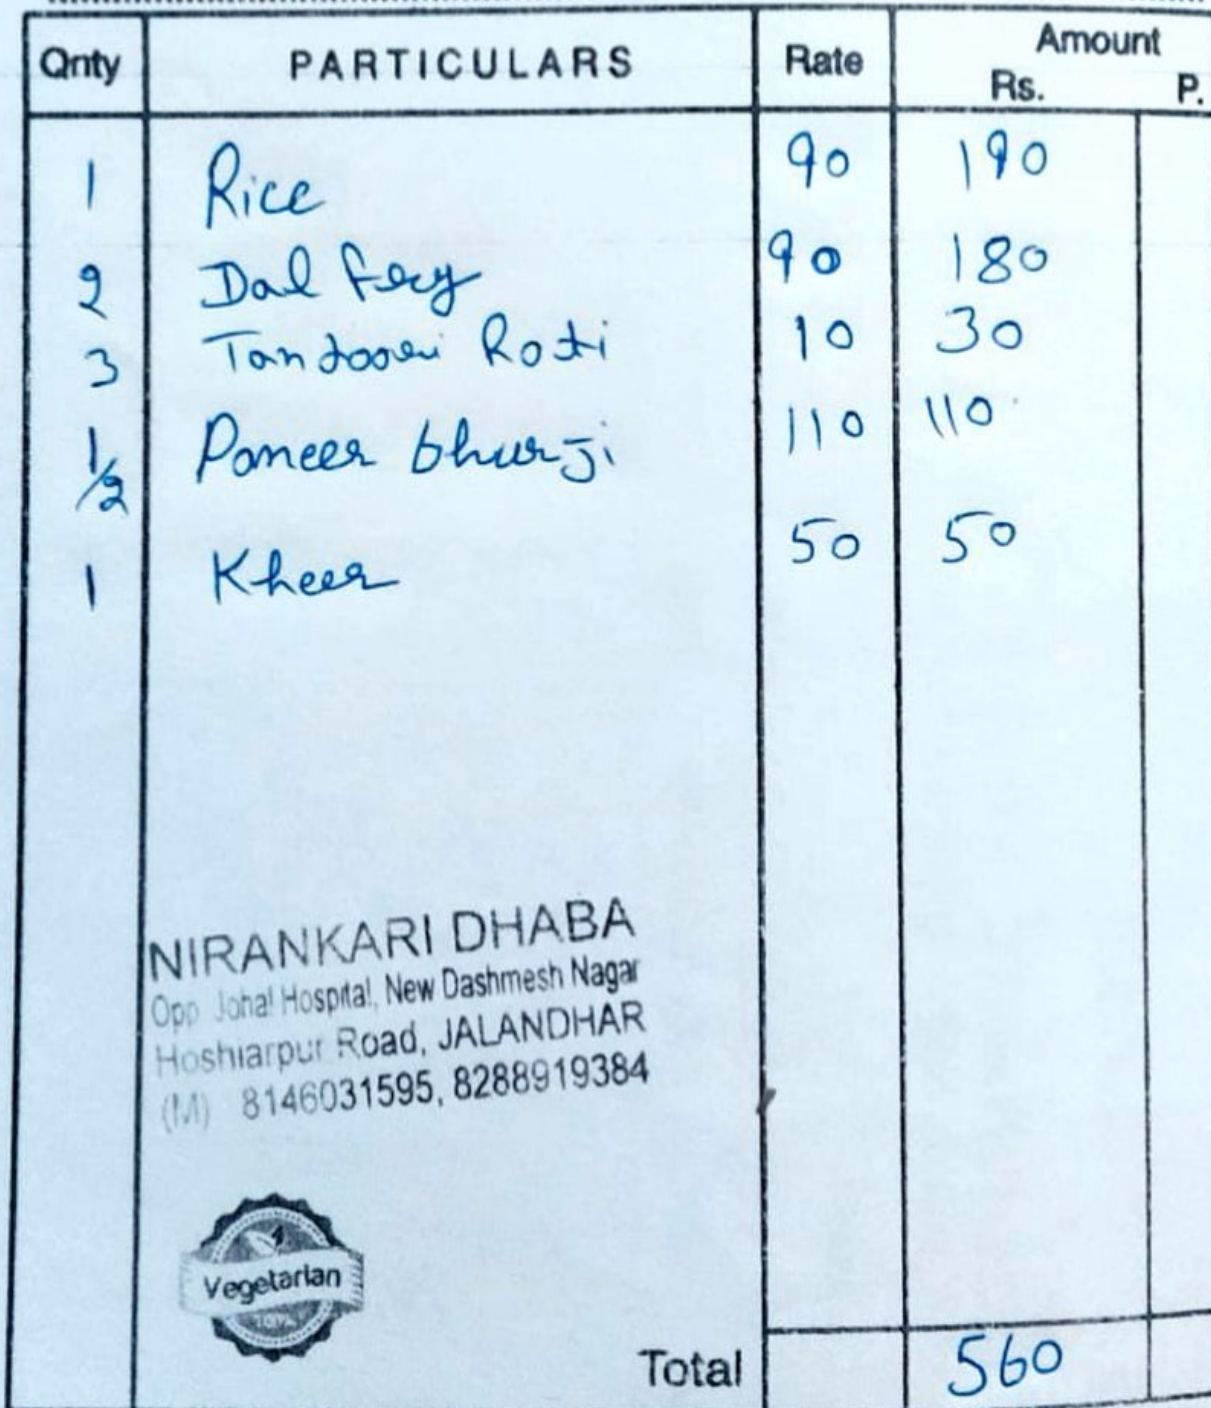 Qnty PARTICULARS Rate Amount
Rs. P.
1 Rice 90 190
2 Dal fry 90 180
3 Tandoori Roti 10 30
1/2 Paneer bhurji 110 110
1 Kheer 50 50
NIRANKARI DHABA
Opp Johal Hospital, New Dashmesh Nagar
Hoshiarpur Road, JALANDHAR
(M) 8146031595, 8288919384
Vegetarian
Total 560